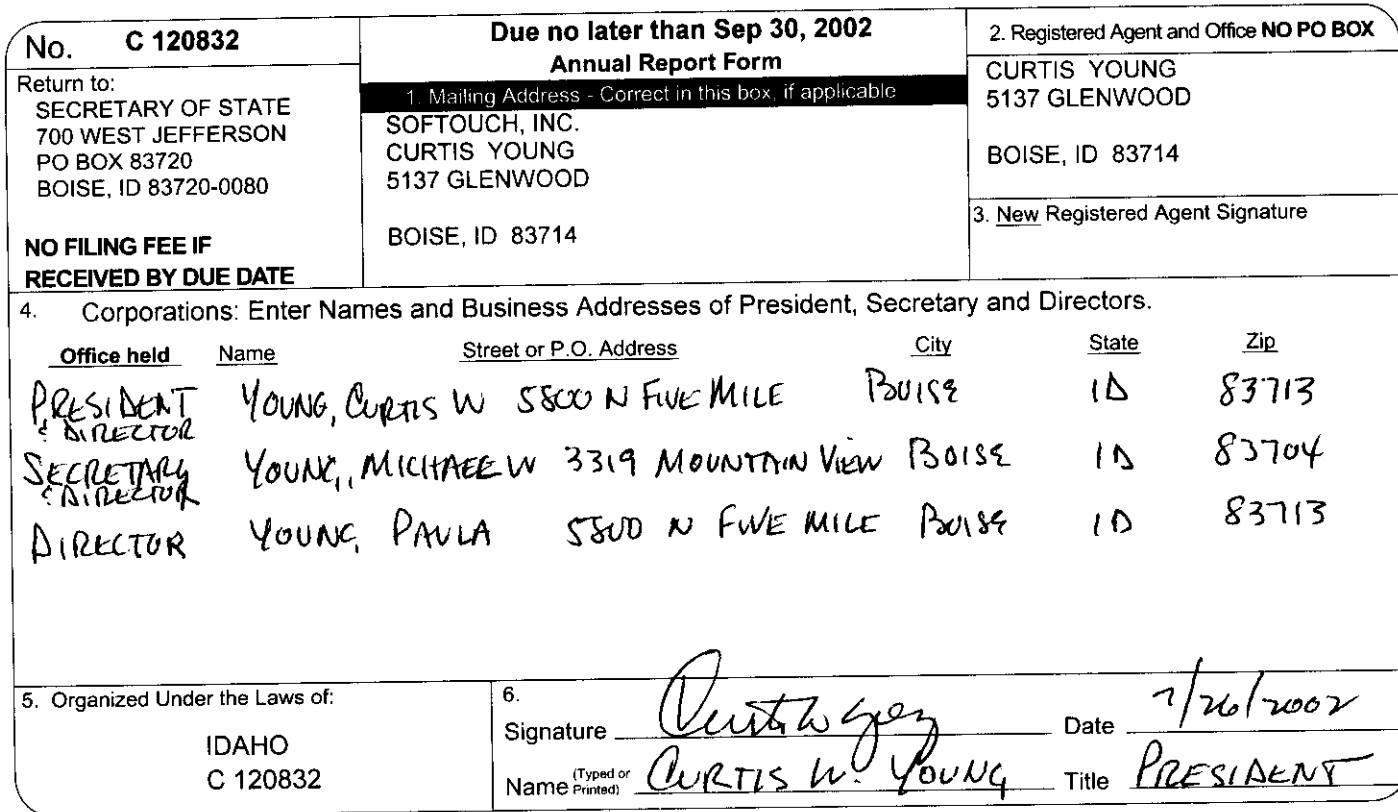 No. C 120832
Return to:
SECRETARY OF STATE
700 WEST JEFFERSON
PO BOX 83720
BOISE, ID 83720-0080
NO FILING FEE IF
RECEIVED BY DUE DATE
Due no later than Sep 30, 2002
Annual Report Form
1. Mailing Address - Correct in this box, if applicable
SOFTOUCH, INC.
CURTIS YOUNG
5137 GLENWOOD
BOISE, ID 83714
2. Registered Agent and Office NO PO BOX
CURTIS YOUNG
5137 GLENWOOD
BOISE, ID 83714
3. New Registered Agent Signature
4. Corporations: Enter Names and Business Addresses of President, Secretary and Directors.
Office held Name Street or P.O. Address City State Zip
PRESIDENT YOUNG, CURTIS W 5800 N FIVE MILE BOISE ID 83713
& DIRECTOR
SECRETARY YOUNG, MICHAEL W 3319 MOUNTAIN VIEW BOISE ID 83704
& DIRECTOR
DIRECTOR YOUNG, PAULA 5800 N FIVE MILE BOISE ID 83713
5. Organized Under the Laws of:
IDAHO
C 120832
6.
Signature Curtis W Young Date 7/26/2002
Name (Typed or Printed) CURTIS W. YOUNG Title PRESIDENT